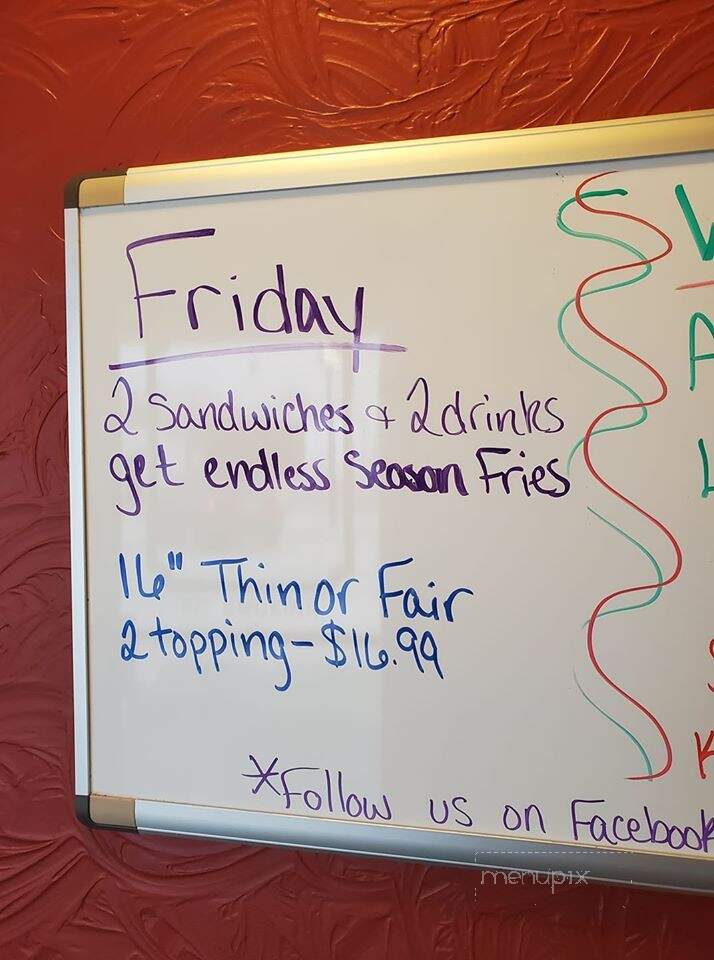 Friday
2 Sandwiches & 2 drinks
get endless Season Fries
16" Thin or Fair
2 topping - $16.99
*Follow us on Facebook
menupix